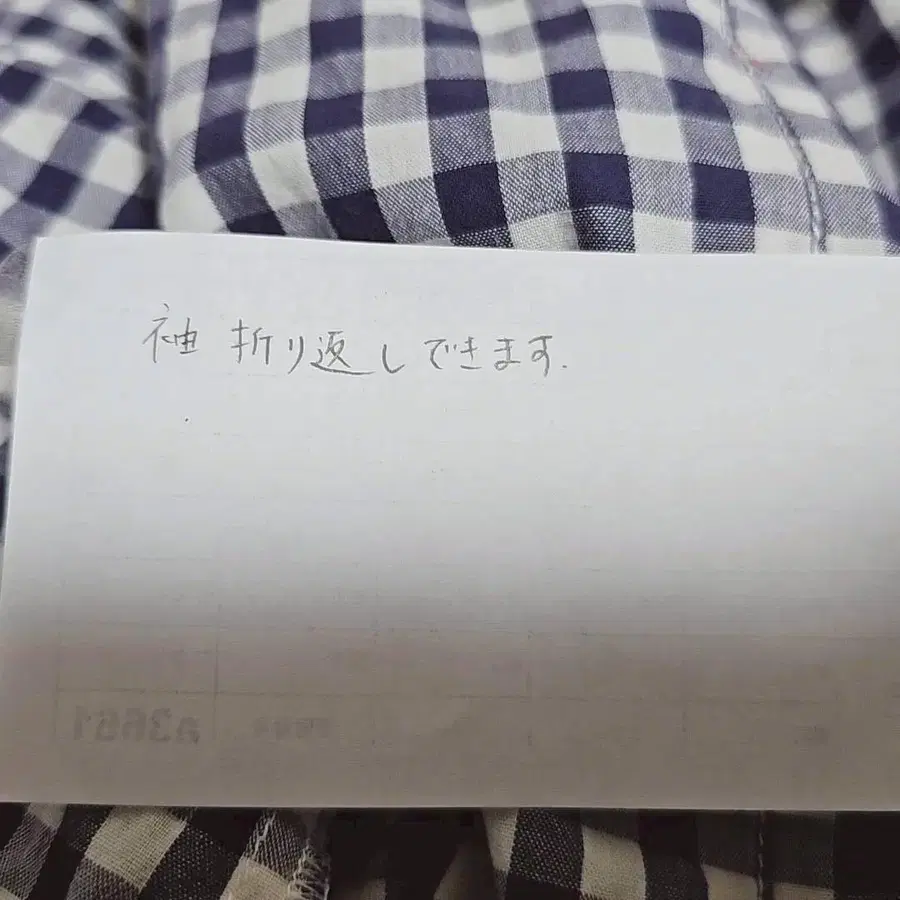 袖 折り返しできます.